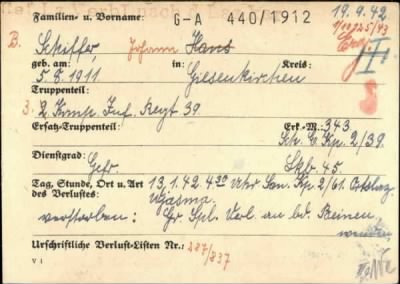 Familien- u. Vorname G-A 440/1912 19.9.42
B. Schiffer, Johann Hans
geb. am: in: Kreis:
5.8.1911 Giesenkirchen
Truppenteil:
3. 2. Komp. Inf. Regt 39
Ersatz-Truppenteil: Erk.-M.: 343
Sch. E. Kp. 2/39
Dienstgrad: Skb. 45.
Gefr.
Tag, Stunde, Ort u. Art 13.1.42 4.30 Uhr San. Kp 2/61. Ortslaz.
des Verlustes: Wjasma
verstorben: Gr. Spl. Verl. an bd. Beinen,
Urschriftliche Verlust-Listen Nr.: 287/837
V 4